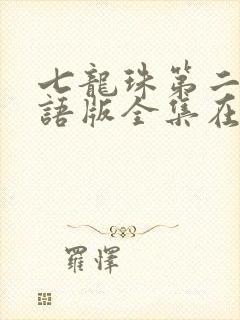 七龍珠第二
語版全集在
羅懌